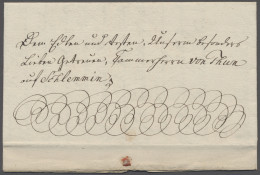 Dem Edlen und Vesten, Unserm besonders
Lieben Getreuen, Cammerherrn von Thun
auf Schlemmin